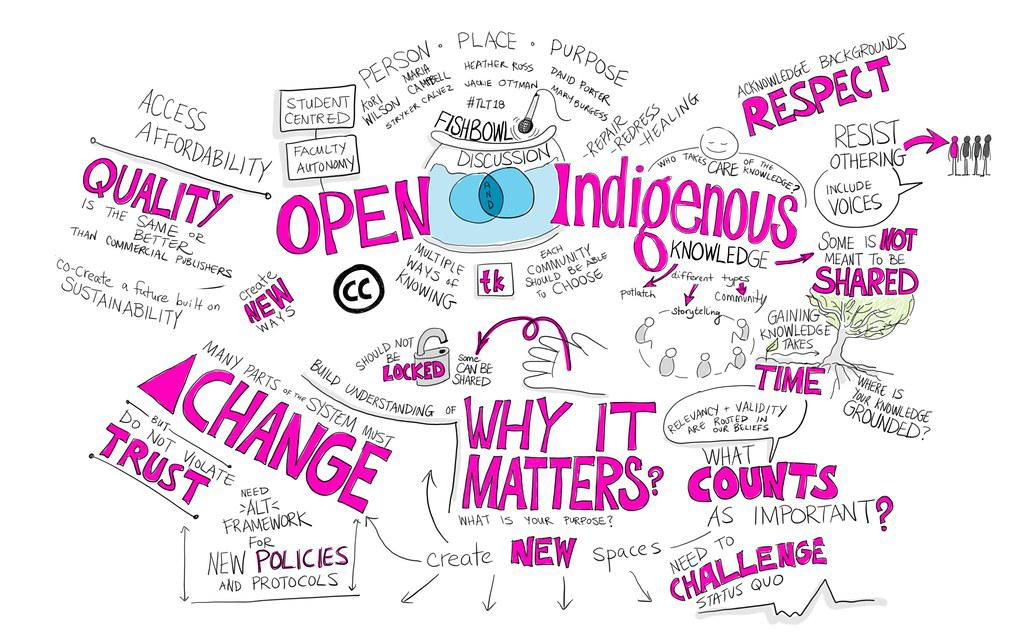 PERSON • PLACE • PURPOSE
KORI WILSON
MARIA CAMPBELL
STRYKER CALVEZ
HEATHER ROSS
JACKIE OTTMAN
#TLT18
DAVID PORTER
MARY BURGESS
FISHBOWL
DISCUSSION
AND
STUDENT
CENTRED
FACULTY
AUTONOMY
OPEN
Indigenous
KNOWLEDGE
ACCESS
AFFORDABILITY
QUALITY
IS THE SAME OR
BETTER
THAN COMMERCIAL PUBLISHERS
CO-Create a future built on
SUSTAINABILITY
create
NEW
WAYS
cc
MULTIPLE
WAYS OF
KNOWING
tk
EACH
COMMUNITY
SHOULD BE ABLE
TO CHOOSE
-REPAIR
-REDRESS
-HEALING
WHO TAKES CARE OF THE
KNOWLEDGE?
ACKNOWLEDGE BACKGROUNDS
RESPECT
RESIST
OTHERING
INCLUDE
VOICES
SOME IS NOT
MEANT TO BE
SHARED
different types
potlatch
storytelling
community
GAINING
KNOWLEDGE
TAKES
TIME
WHERE IS
YOUR KNOWLEDGE
GROUNDED?
SHOULD NOT
BE
LOCKED
Some
CAN BE
SHARED
MANY PARTS OF THE SYSTEM MUST
CHANGE
BUT
DO NOT VIOLATE
TRUST
NEED
ALT
FRAMEWORK
FOR
NEW POLICIES
AND PROTOCOLS
BUILD UNDERSTANDING OF
WHY IT
MATTERS?
WHAT IS YOUR PURPOSE?
create NEW spaces
RELEVANCY + VALIDITY
ARE ROOTED IN
OUR BELIEFS
WHAT
COUNTS
AS IMPORTANT?
NEED TO
CHALLENGE
STATUS QUO